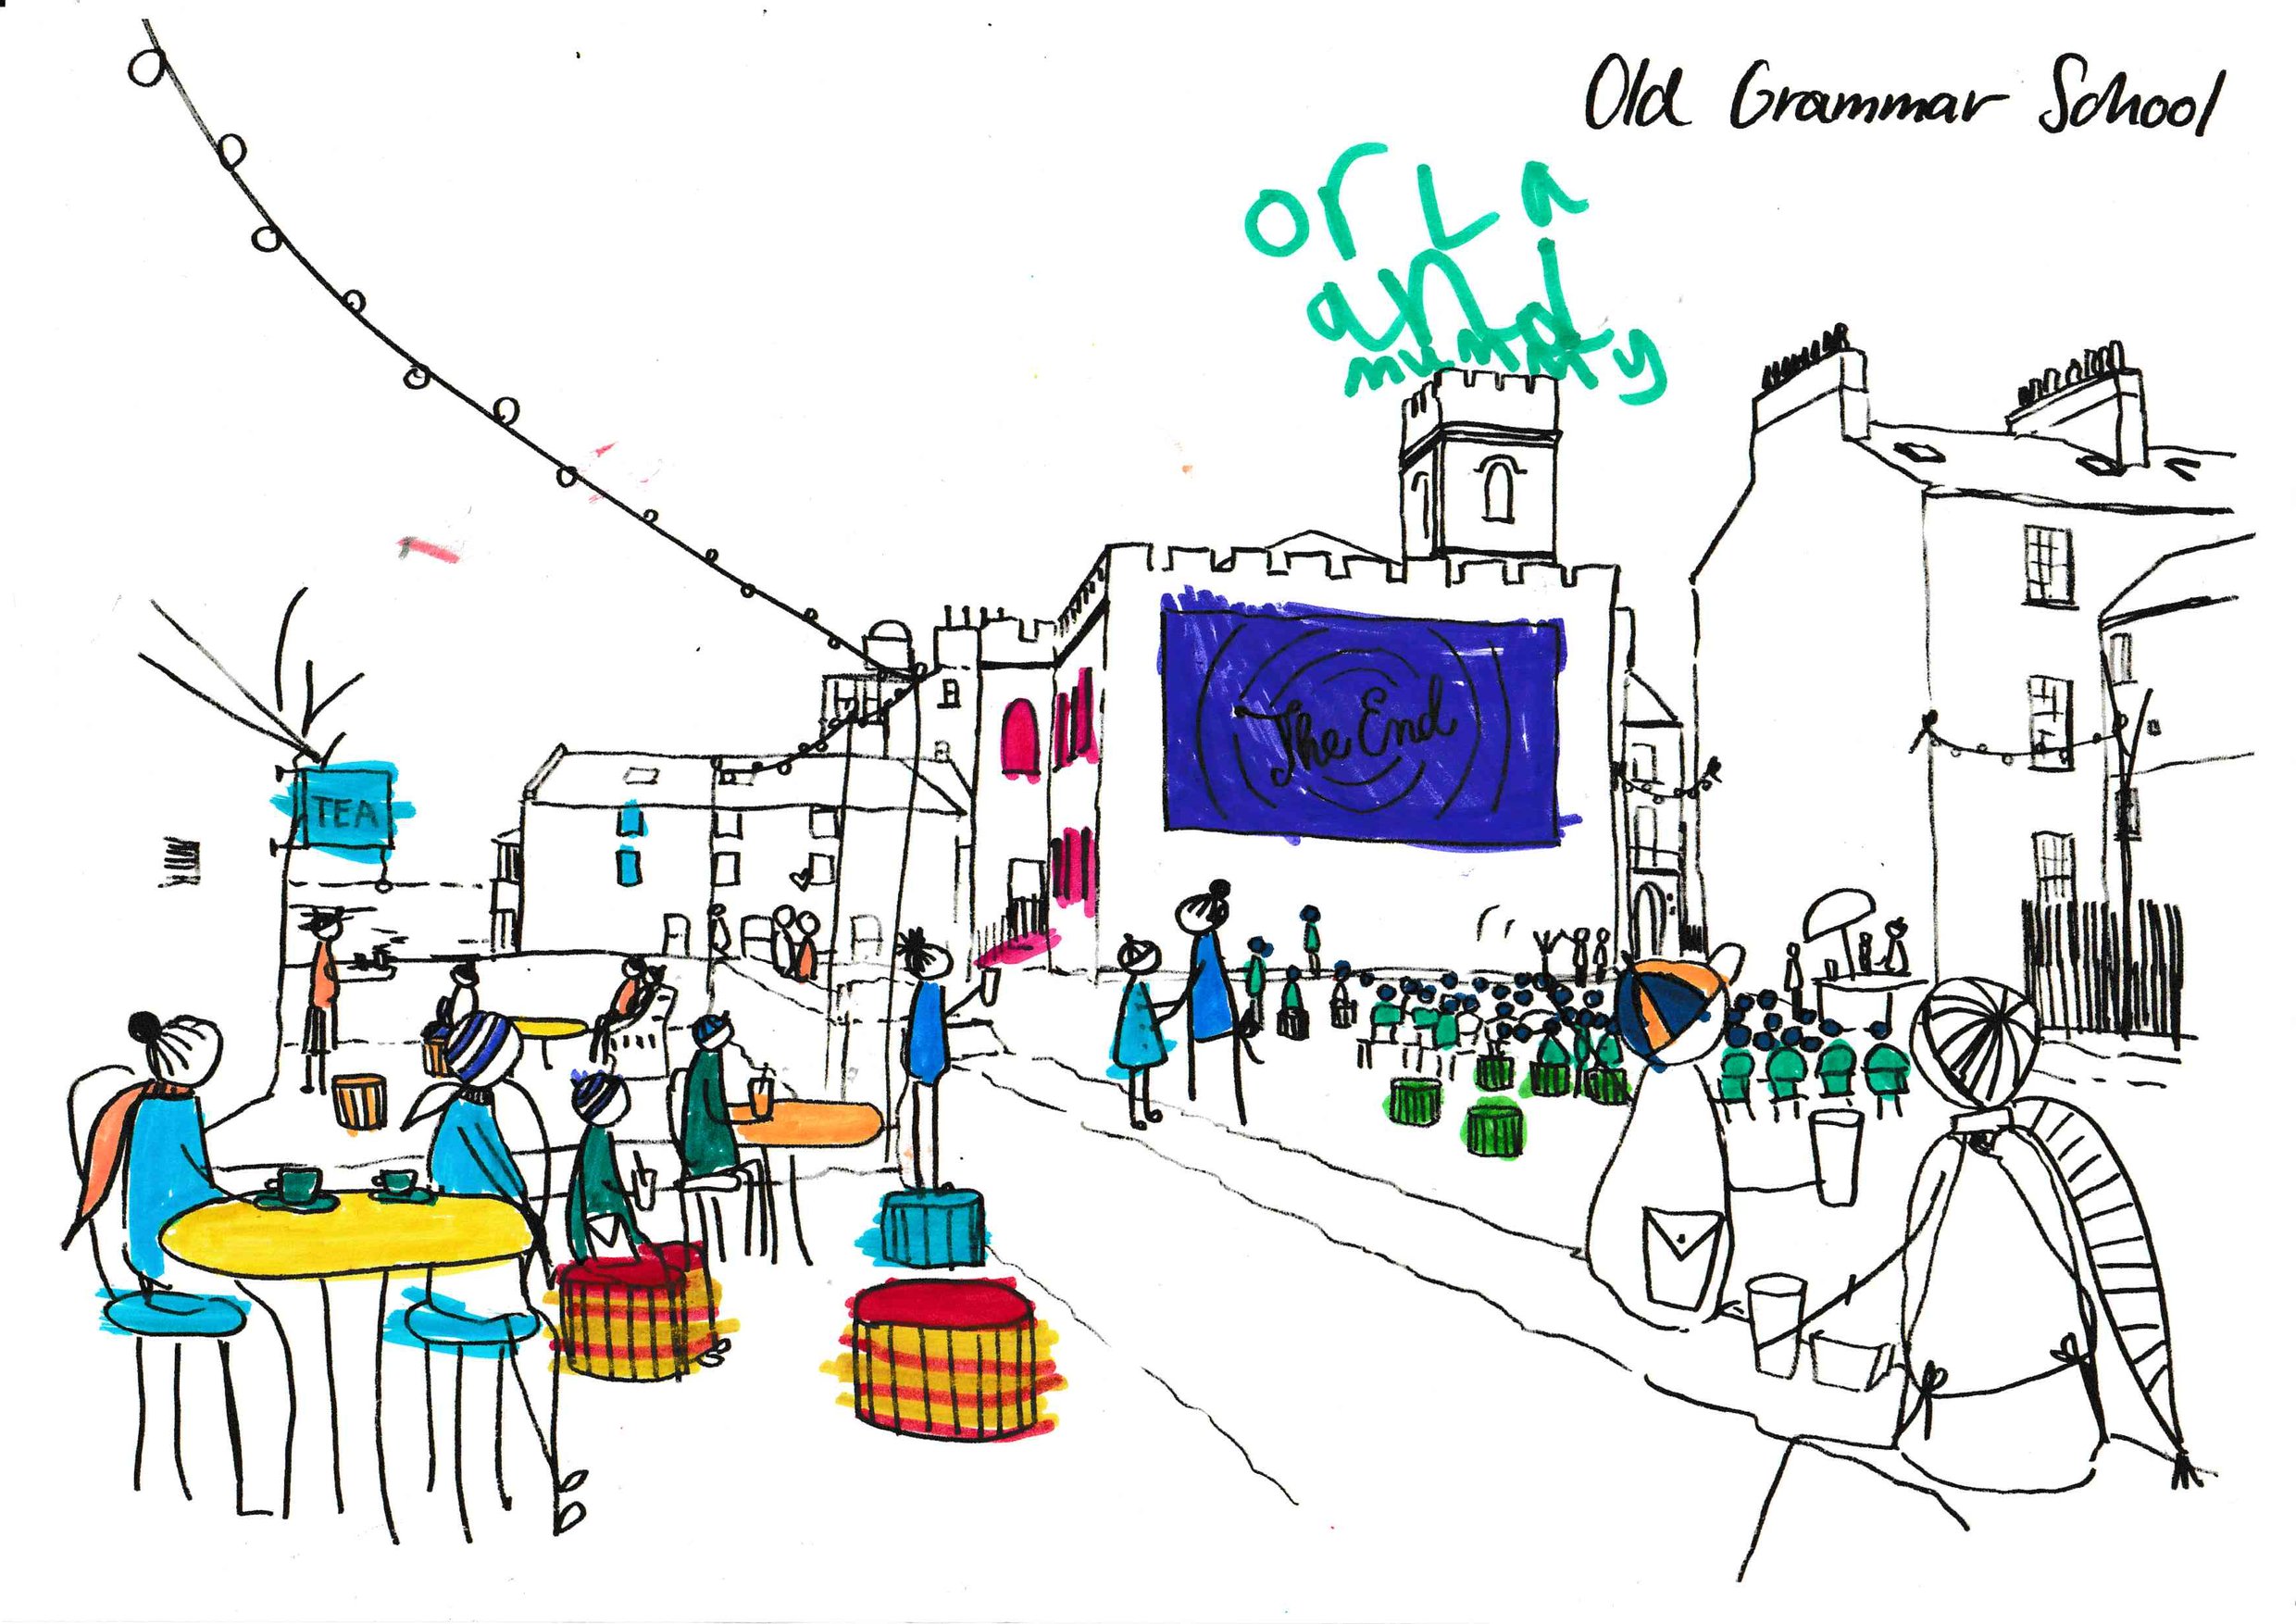 Old Grammar School
orLa
and
mummy
The End
TEA